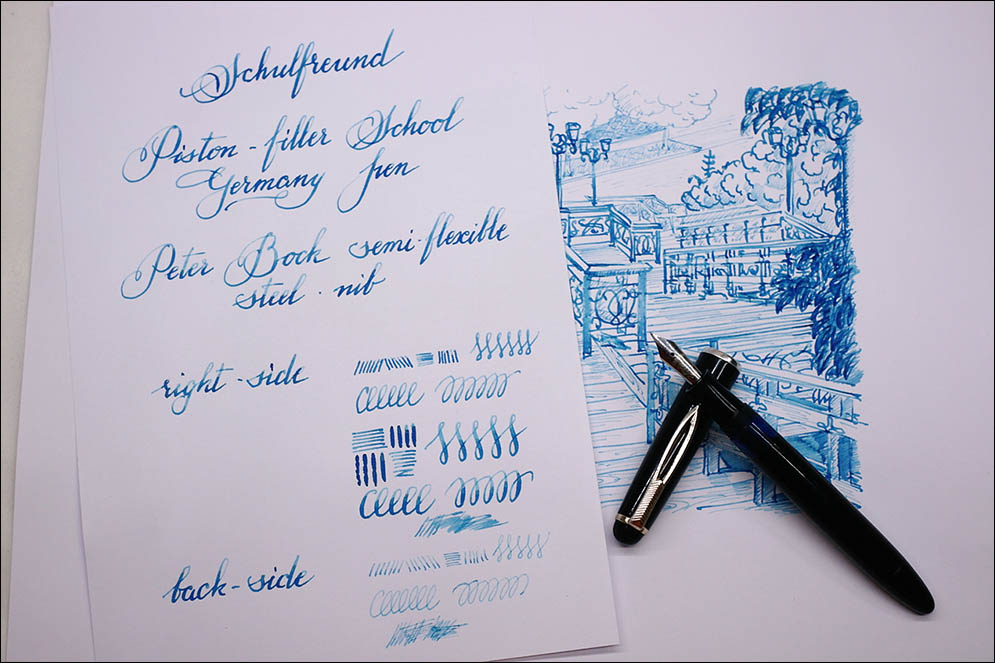 Schulfreund
Piston - filler School
Germany pen
Peter Bock semi-flexible
steel . nib
right - side
back - side